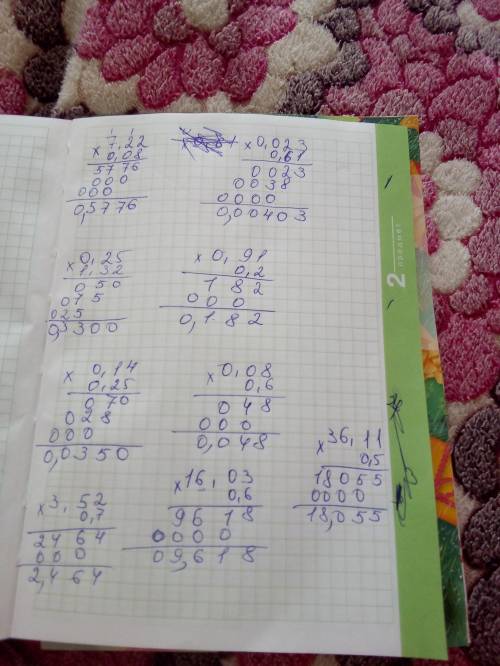 7,22
× 0,08
5776
000
000
0,5776
× 0,023
0,61
0023
0038
0000
0,00403
× 0,25
1,32
050
075
025
0,3300
× 0,91
0,2
182
000
0,182
× 0,14
0,25
070
028
000
0,0350
× 0,08
0,6
048
000
0,048
× 36,11
0,5
18055
0000
18,055
× 3,52
0,7
2464
000
2,464
× 16,03
0,6
9618
0000
09,618
2 предмет